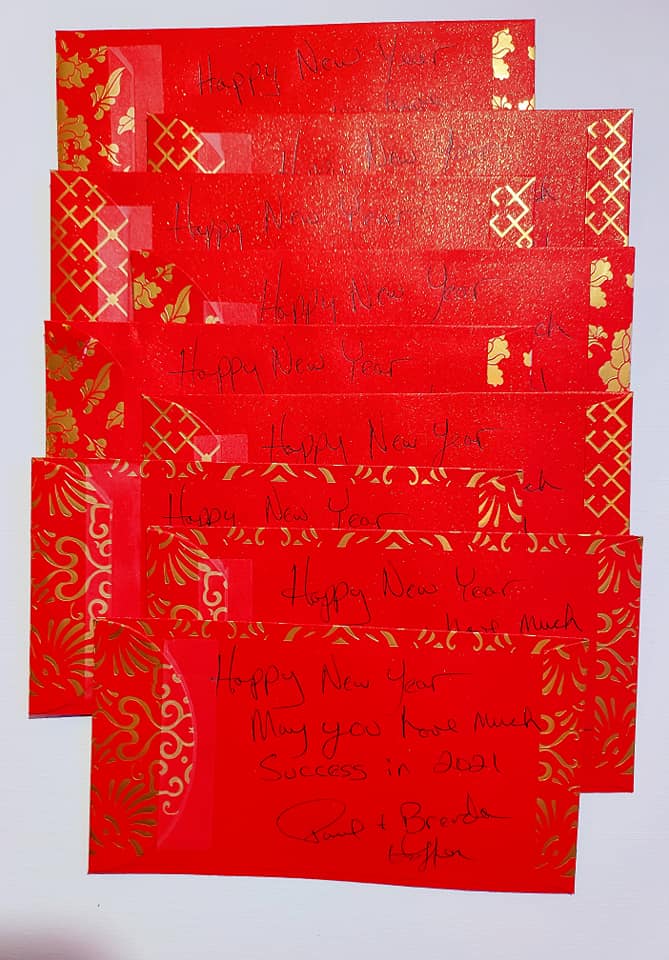 Happy New Year
Happy New Year
Happy New Year
ch
Happy New Year
Happy New Year
ch
Happy New Year
Happy New Year
ch
Happy New Year
have much
Happy New Year
May you have much
Success in 2021
Paul + Brenda